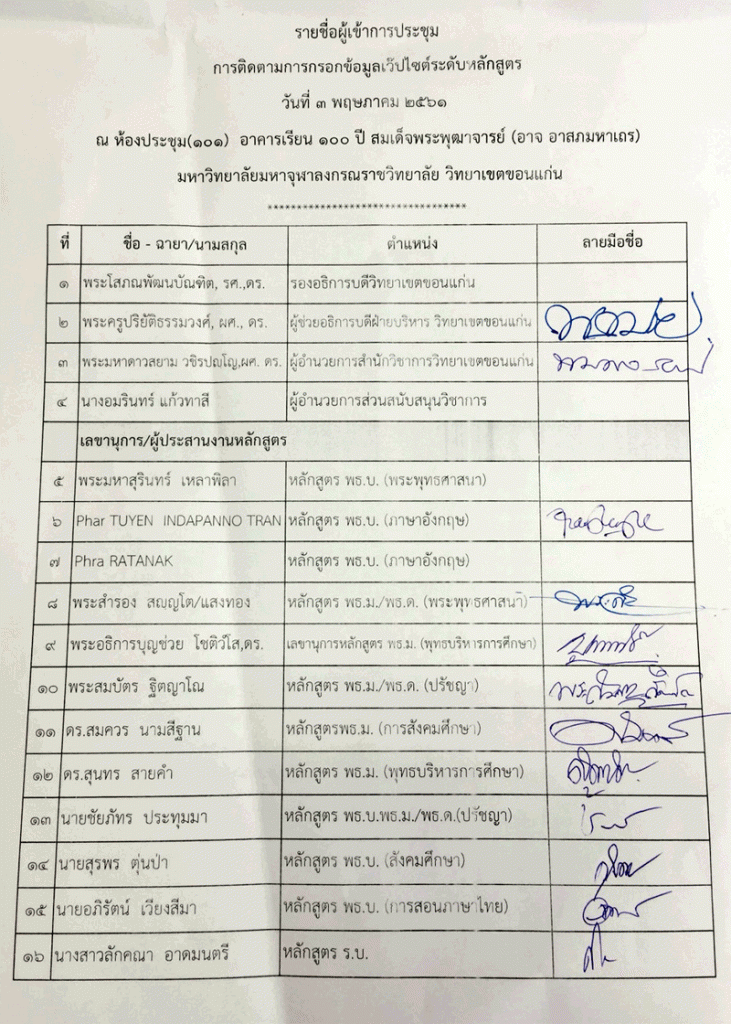 รายชื่อผู้เข้าการประชุม
การติดตามการกรอกข้อมูลเว็ปไซต์ระดับหลักสูตร
วันที่ ๓ พฤษภาคม ๒๕๖๑
ณ ห้องประชุม(๑๐๑) อาคารเรียน ๑๐๐ ปี สมเด็จพระพุฒาจารย์ (อาจ อาสภมหาเถร)
มหาวิทยาลัยมหาจุฬาลงกรณราชวิทยาลัย วิทยาเขตขอนแก่น
*********************************
ที่ ชื่อ - ฉายา/นามสกุล ตำแหน่ง ลายมือชื่อ
๑ พระโสภณพัฒนบัณฑิต, รศ.,ดร. รองอธิการบดีวิทยาเขตขอนแก่น
๒ พระครูปริยัติธรรมวงศ์, ผศ., ดร. ผู้ช่วยอธิการบดีฝ่ายบริหาร วิทยาเขตขอนแก่น
๓ พระมหาดาวสยาม วชิรปญฺโญ,ผศ. ดร. ผู้อำนวยการสำนักวิชาการวิทยาเขตขอนแก่น
๔ นางอมรินทร์ แก้วทาสี ผู้อำนวยการส่วนสนับสนุนวิชาการ
เลขานุการ/ผู้ประสานงานหลักสูตร
๕ พระมหาสุรินทร์ เหลาพิลา หลักสูตร พธ.บ. (พระพุทธศาสนา)
๖ Phar TUYEN INDAPANNO TRAN หลักสูตร พธ.บ. (ภาษาอังกฤษ)
๗ Phra RATANAK หลักสูตร พธ.บ. (ภาษาอังกฤษ)
๘ พระสำรอง สญฺญโต/แสงทอง หลักสูตร พธ.ม./พธ.ด. (พระพุทธศาสนา)
๙ พระอธิการบุญช่วย โชติวํโส,ดร. เลขานุการหลักสูตร พธ.ม. (พุทธบริหารการศึกษา)
๑๐ พระสมบัตร ฐิตญาโณ หลักสูตร พธ.ม./พธ.ด. (ปรัชญา)
๑๑ ดร.สมควร นามสีฐาน หลักสูตรพธ.ม. (การสังคมศึกษา)
๑๒ ดร.สุนทร สายคำ หลักสูตร พธ.ม. (พุทธบริหารการศึกษา)
๑๓ นายชัยภัทร ประทุมมา หลักสูตร พธ.บ.พธ.ม./พธ.ด.(ปรัชญา)
๑๔ นายสุรพร ตุ่นป่า หลักสูตร พธ.บ. (สังคมศึกษา)
๑๕ นายอภิรัตน์ เวียงสีมา หลักสูตร พธ.บ. (การสอนภาษาไทย)
๑๖ นางสาวลักคณา อาดมนตรี หลักสูตร ร.บ.